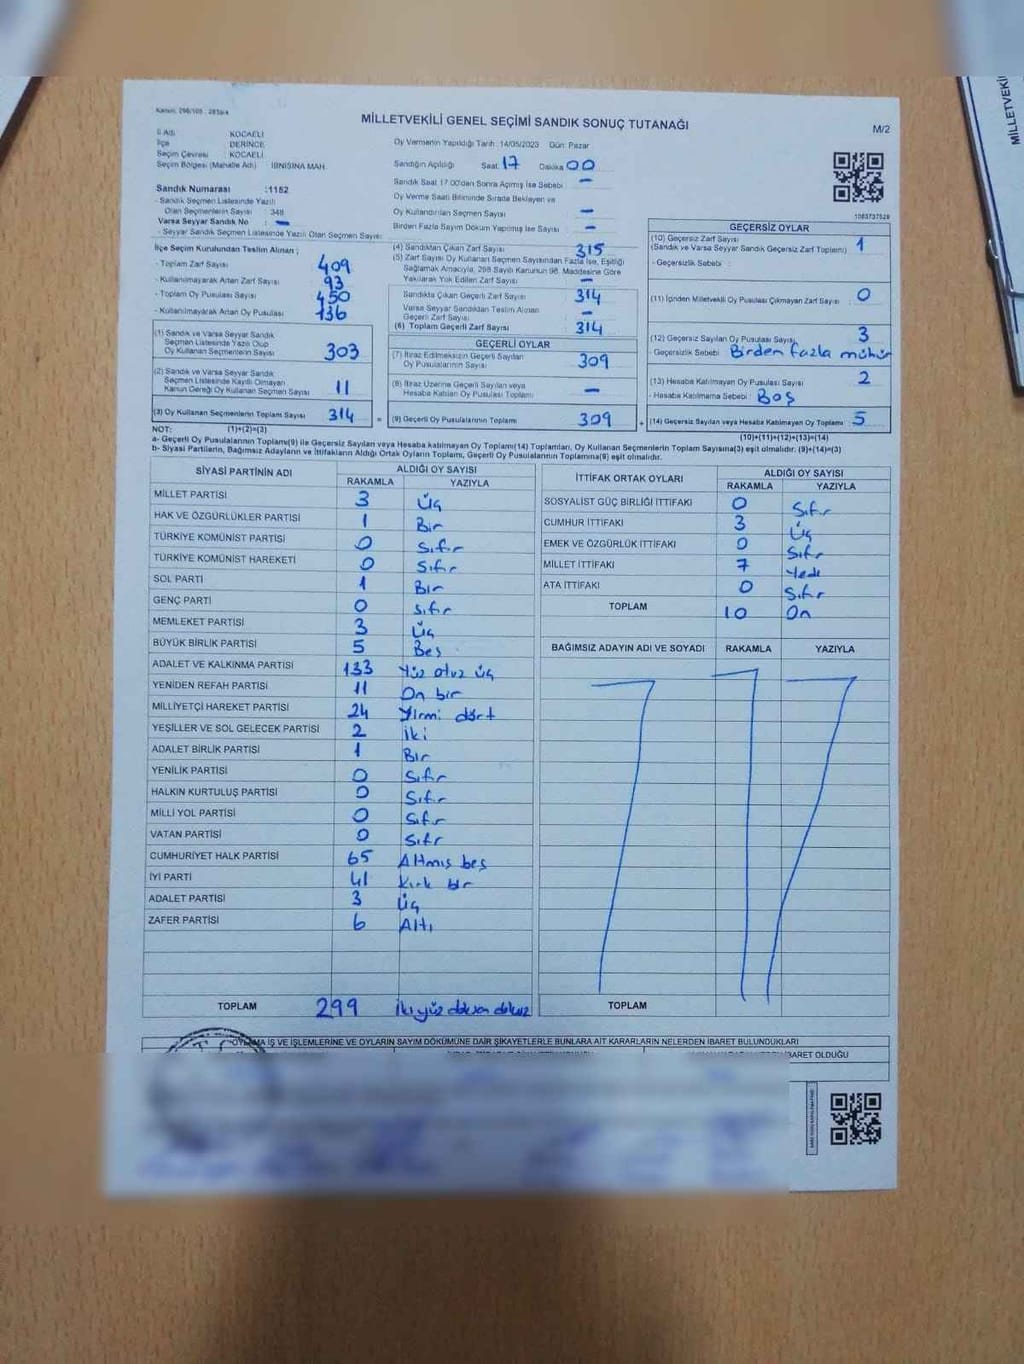 Kanun: 298/105 , 281
MİLLETVEKİLİ GENEL SEÇİMİ SANDIK SONUÇ TUTANAĞI
M/2
İl Adı KOCAELİ
İlçe DERİNCE
Seçim Çevresi KOCAELİ
Seçim Bölgesi (Mahalle Adı) İBNİSİNA MAH.
Oy Vermenin Yapıldığı Tarih 14/05/2023 Gün: Pazar
Sandığın Açıldığı Saat: 17 Dakika 00
Sandık Saat 17.00'den Sonra Açılmış İse Sebebi –
Oy Verme Saati Bitiminde Sırada Bekleyen ve
Oy Kullandırılan Seçmen Sayısı –
Birden Fazla Sayım Döküm Yapılmış İse Sayısı –
Sandık Numarası :1152
- Sandık Seçmen Listesinde Yazılı
Olan Seçmenlerin Sayısı : 348
Varsa Seyyar Sandık No : –
- Seyyar Sandık Seçmen Listesinde Yazılı Olan Seçmen Sayısı:
1083737529
İlçe Seçim Kurulundan Teslim Alınan ;
- Toplam Zarf Sayısı 409
- Kullanılmayarak Artan Zarf Sayısı 93
- Toplam Oy Pusulası Sayısı 450
- Kullanılmayarak Artan Oy Pusulası 136
(1) Sandık ve Varsa Seyyar Sandık
Seçmen Listesinde Yazılı Olup
Oy Kullanan Seçmenlerin Sayısı 303
(2) Sandık ve Varsa Seyyar Sandık
Seçmen Listesinde Kayıtlı Olmayan
Kanun Gereği Oy Kullanan Seçmen Sayısı 11
(3) Oy Kullanan Seçmenlerin Toplam Sayısı 314 =
(4) Sandıktan Çıkan Zarf Sayısı 315
(5) Zarf Sayısı Oy Kullanan Seçmen Sayısından Fazla İse, Eşitliği
Sağlamak Amacıyla, 298 Sayılı Kanunun 98. Maddesine Göre
Yakılarak Yok Edilen Zarf Sayısı –
Sandıkta Çıkan Geçerli Zarf Sayısı 314
Varsa Seyyar Sandıktan Teslim Alınan
Geçerli Zarf Sayısı –
(6) Toplam Geçerli Zarf Sayısı 314
GEÇERLİ OYLAR
(7) İtiraz Edilmeksizin Geçerli Sayılan
Oy Pusulalarının Sayısı 309
(8) İtiraz Üzerine Geçerli Sayılan veya
Hesaba Katılan Oy Pusulası Sayısı –
(9) Geçerli Oy Pusulalarının Toplamı 309 +
GEÇERSİZ OYLAR
(10) Geçersiz Zarf Sayısı
(Sandık ve Varsa Seyyar Sandık Geçersiz Zarf Toplamı) 1
- Geçersizlik Sebebi :
(11) İçinden Milletvekili Oy Pusulası Çıkmayan Zarf Sayısı 0
(12) Geçersiz Sayılan Oy Pusulası Sayısı 3
- Geçersizlik Sebebi Birden fazla mühür
(13) Hesaba Katılmayan Oy Pusulası Sayısı 2
- Hesaba Katılmama Sebebi : Boş
(14) Geçersiz Sayılan veya Hesaba Katılmayan Oy Toplamı 5
NOT: (1)+(2)=(3) (10)+(11)+(12)+(13)=(14)
a- Geçerli Oy Pusulalarının Toplamı(9) ile Geçersiz Sayılan veya Hesaba katılmayan Oy Toplamı(14) Toplamları, Oy Kullanan Seçmenlerin Toplam Sayısına(3) eşit olmalıdır. (9)+(14)=(3)
b- Siyasi Partilerin, Bağımsız Adayların ve İttifakların Aldığı Ortak Oyların Toplamı, Geçerli Oy Pusulalarının Toplamına(9) eşit olmalıdır.
SİYASİ PARTİNİN ADI ALDIĞI OY SAYISI
RAKAMLA YAZIYLA
MİLLET PARTİSİ 3 Üç
HAK VE ÖZGÜRLÜKLER PARTİSİ 1 Bir
TÜRKİYE KOMÜNİST PARTİSİ 0 Sıfır
TÜRKİYE KOMÜNİST HAREKETİ 0 Sıfır
SOL PARTİ 1 Bir
GENÇ PARTİ 0 Sıfır
MEMLEKET PARTİSİ 3 Üç
BÜYÜK BİRLİK PARTİSİ 5 Beş
ADALET VE KALKINMA PARTİSİ 133 Yüz otuz üç
YENİDEN REFAH PARTİSİ 11 On bir
MİLLİYETÇİ HAREKET PARTİSİ 24 Yirmi dört
YEŞİLLER VE SOL GELECEK PARTİSİ 2 İki
ADALET BİRLİK PARTİSİ 1 Bir
YENİLİK PARTİSİ 0 Sıfır
HALKIN KURTULUŞ PARTİSİ 0 Sıfır
MİLLİ YOL PARTİSİ 0 Sıfır
VATAN PARTİSİ 0 Sıfır
CUMHURİYET HALK PARTİSİ 65 Altmış beş
İYİ PARTİ 41 Kırk bir
ADALET PARTİSİ 3 Üç
ZAFER PARTİSİ 6 Altı
TOPLAM 299 İki yüz doksan dokuz
İTTİFAK ORTAK OYLARI ALDIĞI OY SAYISI
RAKAMLA YAZIYLA
SOSYALİST GÜÇ BİRLİĞİ İTTİFAKI 0 Sıfır
CUMHUR İTTİFAKI 3 Üç
EMEK VE ÖZGÜRLÜK İTTİFAKI 0 Sıfır
MİLLET İTTİFAKI 7 Yedi
ATA İTTİFAKI 0 Sıfır
TOPLAM 10 On
BAĞIMSIZ ADAYIN ADI VE SOYADI RAKAMLA YAZIYLA
TOPLAM
OYLAMA İŞ VE İŞLEMLERİNE VE OYLARIN SAYIM DÖKÜMÜNE DAİR ŞİKAYETLERLE BUNLARA AİT KARARLARIN NELERDEN İBARET BULUNDUKLARI
İBARET OLDUĞU
MİLLETVEKİ